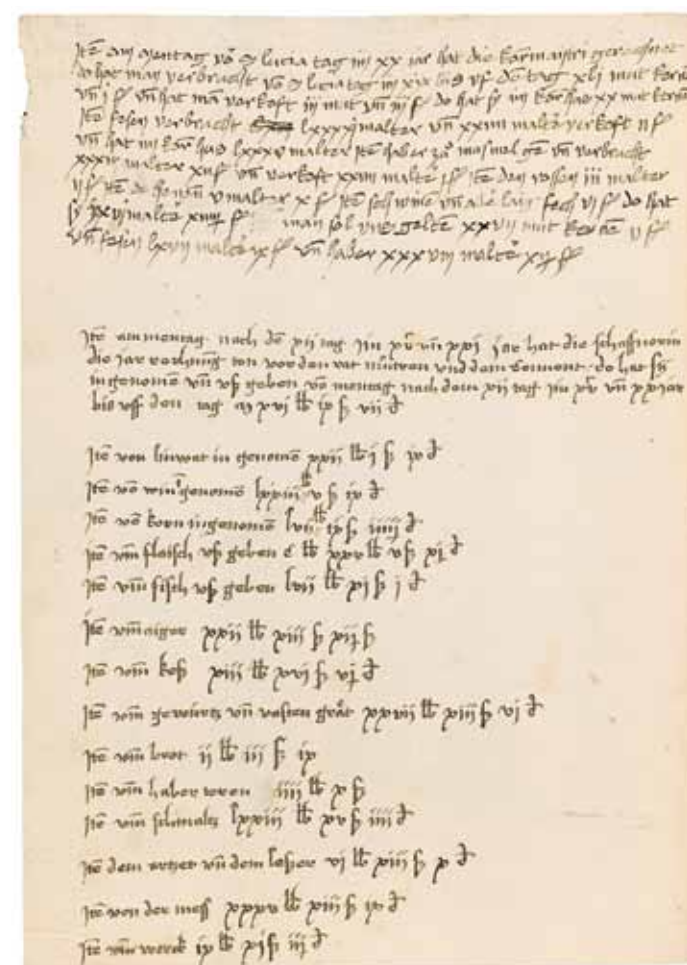 Itē am mentag vō S lucia tag in xx iar hat die kornmaistri gerechnet
do hat man verbracht vō S lucia tag in xix bis vf dē tag xli mut kernē
vn̄ i f vn̄ hat mā verkoft iii mut vn̄ iii f do hat sy im kor hus xx mut kernē
Itē fesen verbracht lxxxxi malter vn̄ xxiiii malter verkoft ii f
vn̄ hat im kor hus lxxxv malter Itē haber zů vn̄ verbracht
xxxii malter xii f vn̄ verkoft xxiii malter i f itē den rossen iii malter
ii f itē vn̄ v malter x f itē vn̄ vi f do hat
sy malter f man sol vns geltē xxvii mut kernē ii f
vn̄ fesen lxviii malter ix f vn̄ haber xxxviii malter f
Itē am montag nach dē xii tag im xx vn̄ xxi iar hat die schaffnerin
die iar rechnung ton vor den rat mūtren vnd dem convent do hat sy
in genomē vn̄ vß geben vō montag nach dem xii tag im vn̄ xx iar
bis vff den tag xvi lb ix ß vii d
Itē von linwat in genomē xxii lb i ß ix d
Itē vō genomē lxxiii lb v ß ix d
Itē vō korn in genomē lvii lb ix ß iiii d
Itē vm̄ flaisch vß geben c lb xxv lb v ß xi d
Itē vm̄ fisch vß geben lvii lb xi ß i d
Itē vm̄ aiger xxii lb xiii ß
Itē vm̄ keß xiii lb xvi ß d
Itē vm̄ gewürtz vn̄ vasten xxvii lb xiii ß vi d
Itē vm̄ brot ii lb iii ß ix
Itē vm̄ haber iiii lb x ß
Itē vm̄ schmaltz lxxiii lb xv ß iiii d
Itē dem artzet vn̄ dem vi lb xiii ß x d
Itē von der mess xxxv lb xiii ß ix d
Itē vm̄ werck ix lb ß iii d